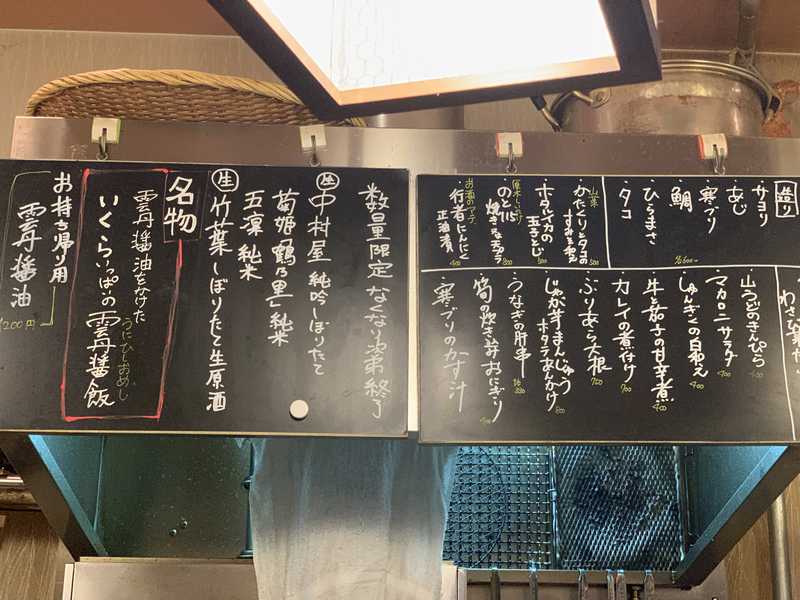 造り
サヨリ
あじ
寒ブリ
鯛
ひらまさ
タコ
山菜
かたくりとタコの
すみそ和え
500
ホタルイカの
玉子とじ
500
のと115
焼き
800
お酒のアテ
行者にんにく
正油漬
400
わさび
山うどのきんぴら
400
マカロニサラダ
400
しゅんぎくの白和え
400
牛と茄子の甘辛煮
カレイの煮付け
900
ぶりあら大根
700
じゃが芋まんじゅう
ホタテあんかけ
800
うなぎの肝串
筍の炊き込みおにぎり
寒ブリのかす汁
数量限定 なくなり次第終了
生 中村屋 純吟しぼりたて
菊姫「鶴乃里」純米
五凛 純米
生 竹葉 しぼりたて生原酒
名物
雲丹醤油をつけた
いくらいっぱいの雲丹醤飯
うにひしおめし
お持ち帰り用
雲丹醤油
1200円